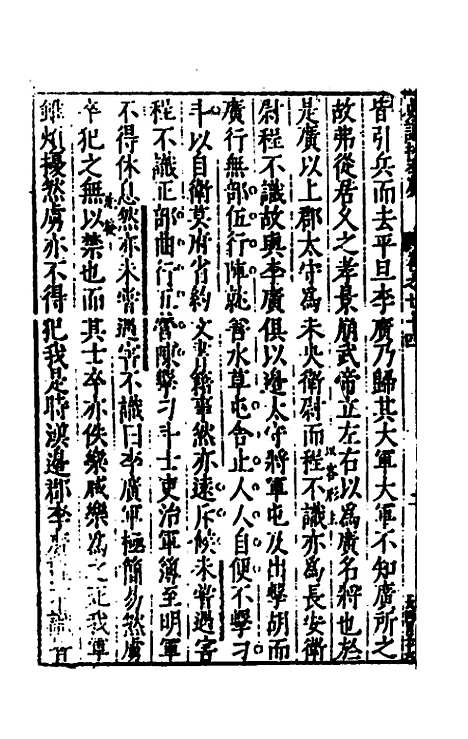 皆引兵而去平旦李廣乃歸其大軍大軍不知廣所之
故弗從居久之孝景崩武帝立左右以為廣名將也於
是廣以上郡太守為未央衛尉而程不識亦為長安衛
尉程不識故與李廣俱以邊太守將軍屯及出擊胡而
廣行無部伍行陳就善水草屯舍止人人自便不擊刁
斗以自衛莫府省約文書籍事然亦遠斥候未嘗遇害
程不識正部曲行伍營陳擊刁斗士吏治軍簿至明軍
不得休息然亦未嘗遇害不識曰李廣軍極簡易然虜
卒犯之無以禁也而其士卒亦佚樂咸樂為之死我軍
雖煩擾然虜亦不得犯我是時漢邊郡李廣程不識皆